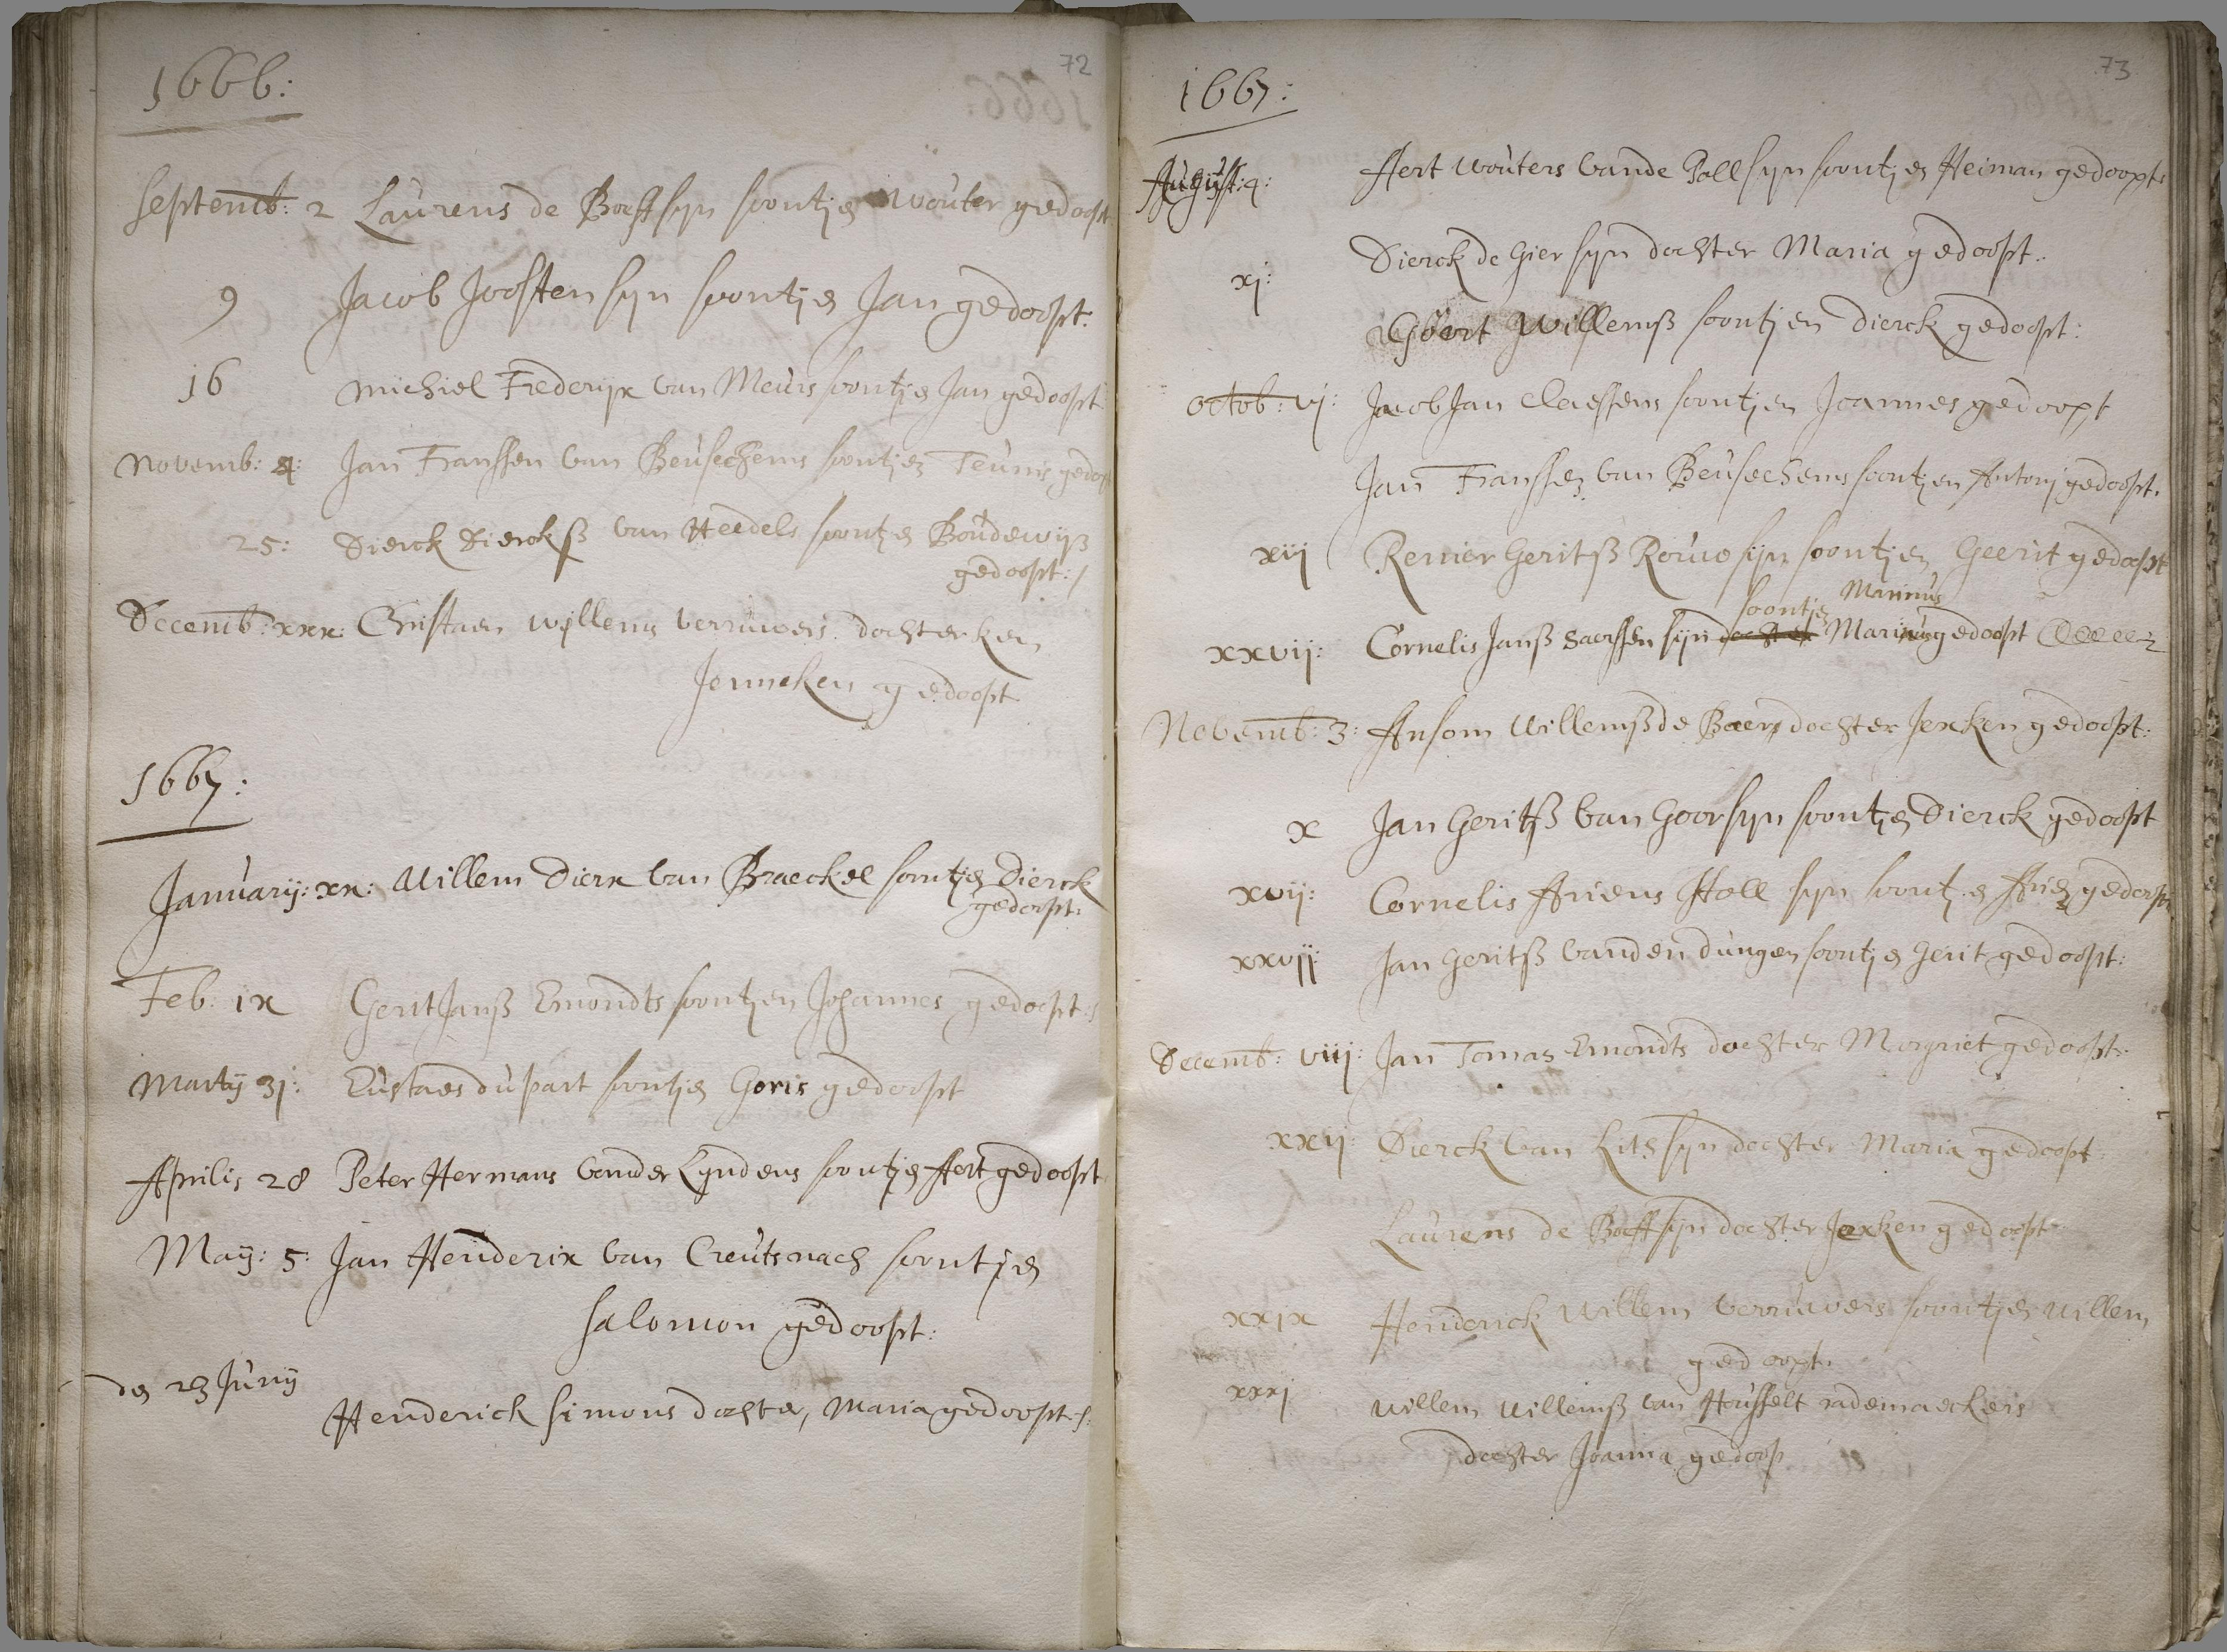 72
1666:
Septemb: 2 Laurens de Boeff syn soontje Wouter gedoopt
9 Jacob Joosten syn soontje Jan gedoopt:
16 Michiel Frederyx van Meurs soontje Jan gedoopt
Novemb: 4: Jan Franssen van Beusechems soontjen Teunis gedoopt
25: Dierck Dierckß van Heedels soontje Boudewijs
gedoopt:/
Decemb: xxx: Cristaen Wyllems verruwers dochterken
Jenneken gedoopt
1667:
January: xx: Willem Dierx van Braeckel soontje Dierck
gedoopt:
Feb: ix Gerit Janß Emondts soontjen Johannes gedoopt:
Marty 31: Eustaes dupart soontje Goris gedoopt
Aprilis 28 Peter Hermans vander Lyndens soontje Aert gedoopt
May: 5: Jan Henderix van Creutsnach soontje
Salomon gedoopt:
de 23 Juny
Henderick Simons dochter, Maria gedoopt:
73
1667:
August: 4: Aert Wouters vande Poll syn soontjen Heiman gedoopt:
xj: Dierck de Gier syn dochter Maria gedoopt:
Goert Willemß soontjen Dierck gedoopt:
Octob: vj: Jacob Jan Claessens soontjen Joannes gedoopt
Jan Franssen van Beusechems soontjen Antony gedoopt.
xiij Renier Geritß Rouwe syn soontjen Geerit gedoopt
soontje Marinus
xxvij: Cornelis Janß Saerssen syn dochter Marinus gedoopt
Novemb: 3: Ansom Willemß de Baers dochter Jexken gedoopt:
x Jan Geritß van Goor syn soontje Dierck gedoopt
xvij: Cornelis Ariens Holl syn soontje Arie gedoopt
xxvij: Jan Geritß vanden dungen soontje Gerit gedoopt:
Decemb: viij: Jan Tomas Emondts dochter Margriet gedoopt:
xxij: Dierck van Lith syn dochter Maria gedoopt:
Laurens de Boeff syn dochter Jexken gedoopt
xxix Henderick Willem verruwers soontje Willem
gedoopt:
xxxj Willem Willemß van Housselt rademaeckers
dochter Joanna gedoop